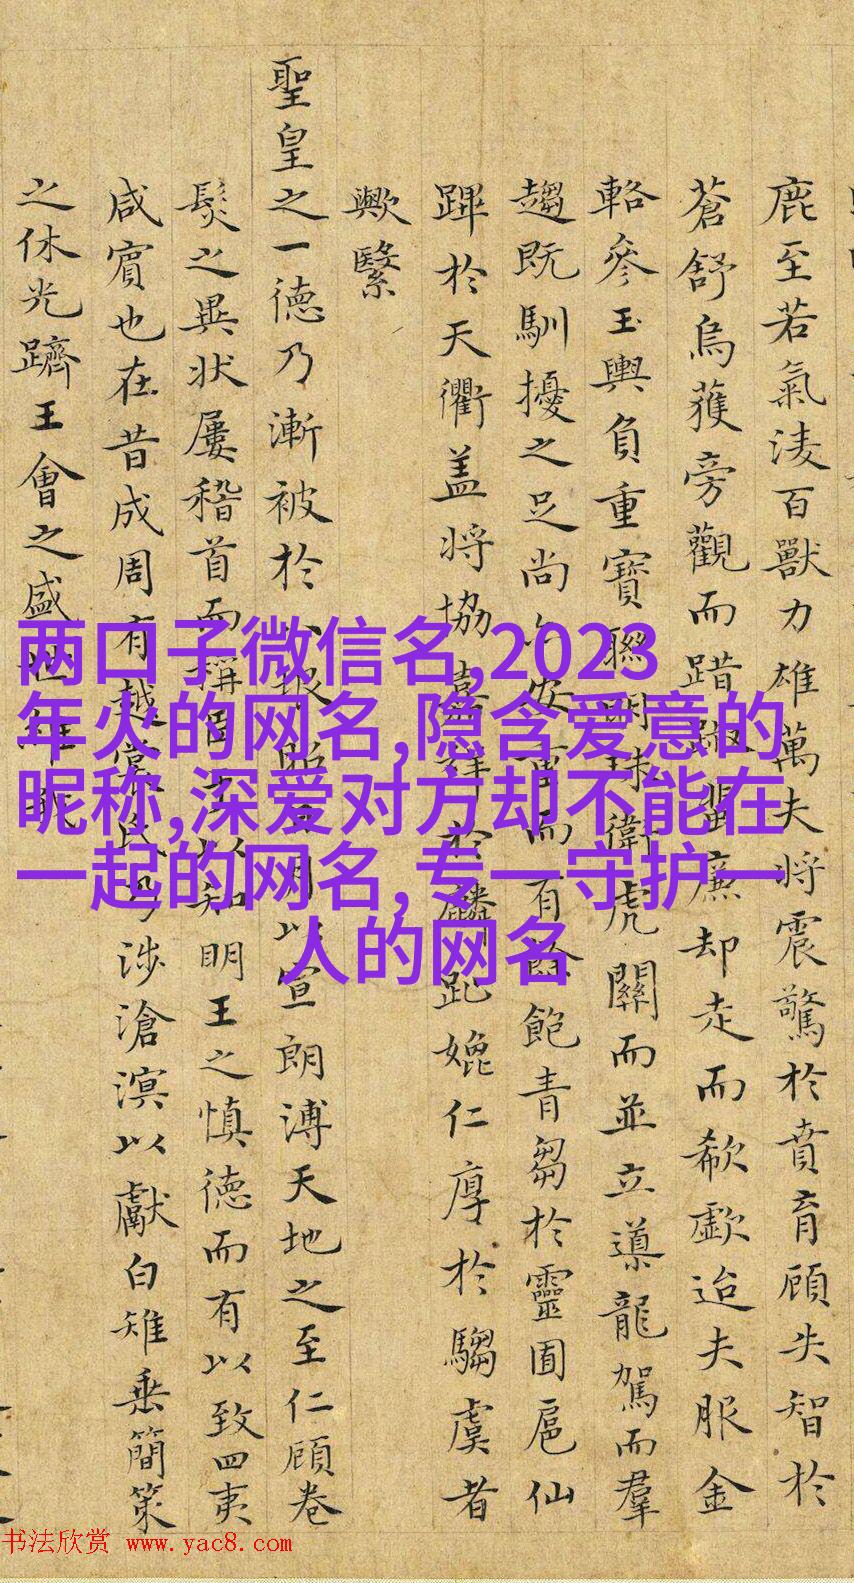 鹿至若氣淩百獸力雄萬夫將震驚於賁育顧失智於
蒼舒烏獲旁觀而踖踧蜚廉却走而欷歔迨夫服金
輅參玉輿負重寶聯明珠衛虎關而並立導龍駕而羣
趨既馴擾之足尚安重而有餘飽青芻於靈囿扈仙
蹕於天衢盖將協嘉祥於麟趾媲仁厚於騶虞者
歟繄
聖皇之一德乃漸被於八垠月以宣朗溥天地之至仁顧卷
髮之異状屢稽首而稱臣以知明王之慎德而有以致四夷
咸賓也在昔成周有越裳氏乃涉滄溟以獻白雉垂簡策
之休光躋王會之盛世
两口子微信名,2023
年火的网名,隐含爱意的
昵称,深爱对方却不能在
一起的网名,专一守护一
人的网名
书法欣赏 www.yac8.com